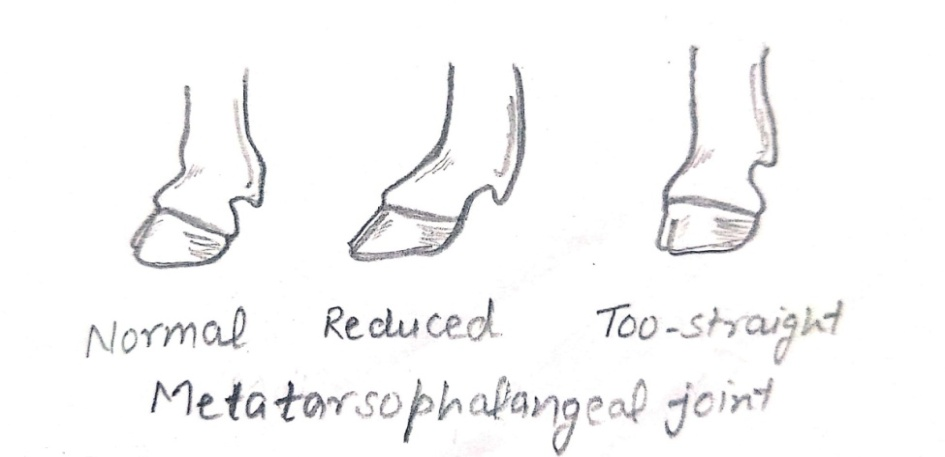 Normal Reduced Too-straight
Metatarsophalangeal joint